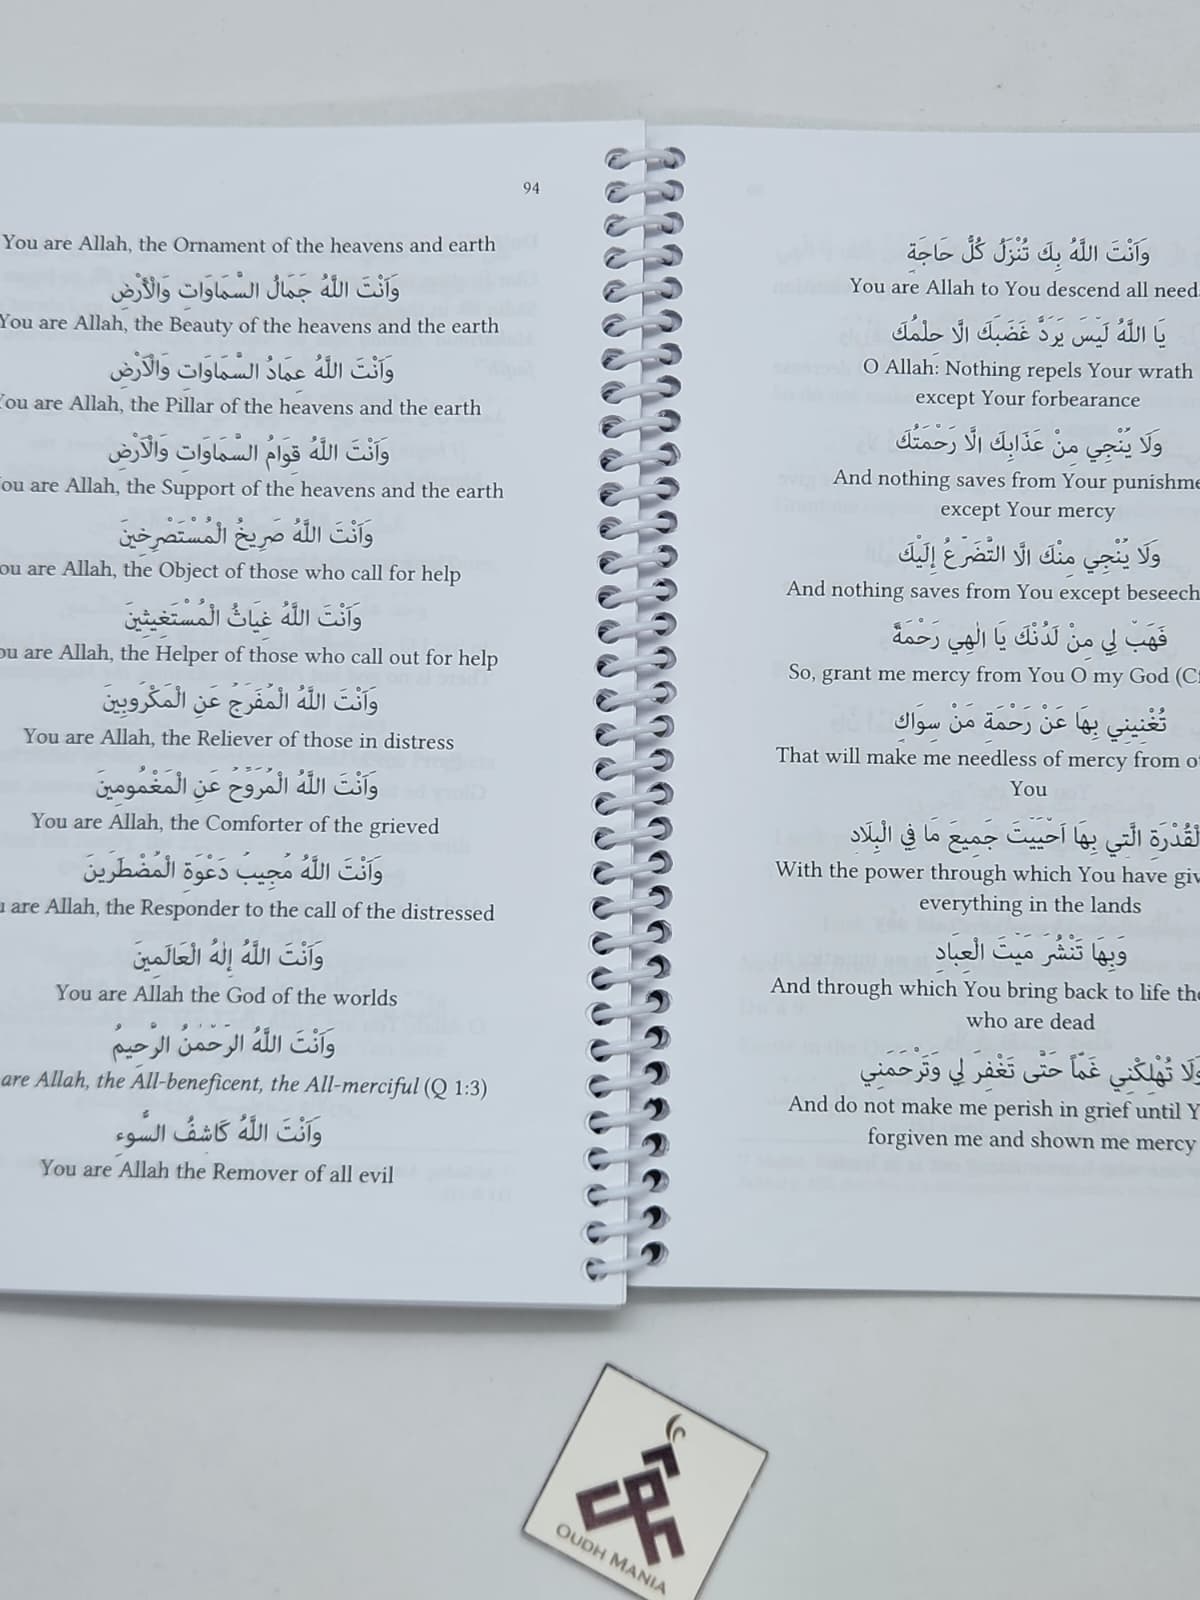 94
You are Allah, the Ornament of the heavens and earth
وَاَنْتَ اللَّهُ جَمَالُ السَّمَاوَاتِ وَالْاَرْضِ
You are Allah, the Beauty of the heavens and the earth
وَاَنْتَ اللَّهُ عِمَادُ السَّمَاوَاتِ وَالْاَرْضِ
You are Allah, the Pillar of the heavens and the earth
وَاَنْتَ اللَّهُ قِوَامُ السَّمَاوَاتِ وَالْاَرْضِ
ou are Allah, the Support of the heavens and the earth
وَاَنْتَ اللَّهُ صَرِيخُ الْمُسْتَصْرِخِينَ
ou are Allah, the Object of those who call for help
وَاَنْتَ اللَّهُ غِيَاثُ الْمُسْتَغِيثِينَ
ou are Allah, the Helper of those who call out for help
وَاَنْتَ اللَّهُ الْمُفَرِّجُ عَنِ الْمَكْرُوبِينَ
You are Allah, the Reliever of those in distress
وَاَنْتَ اللَّهُ الْمُرَوِّحُ عَنِ الْمَغْمُومِينَ
You are Allah, the Comforter of the grieved
وَاَنْتَ اللَّهُ مُجِيبُ دَعْوَةِ الْمُضْطَرِّينَ
u are Allah, the Responder to the call of the distressed
وَاَنْتَ اللَّهُ إِلٰهُ الْعَالَمِينَ
You are Allah the God of the worlds
وَاَنْتَ اللَّهُ الرَّحْمٰنُ الرَّحِيمُ
are Allah, the All-beneficent, the All-merciful (Q 1:3)
وَاَنْتَ اللَّهُ كَاشِفُ السُّوءِ
You are Allah the Remover of all evil
وَاَنْتَ اللَّهُ بِكَ تُنْزَلُ كُلُّ حَاجَةٍ
You are Allah to You descend all need
يَا اللَّهُ لَيْسَ يَرُدُّ غَضَبَكَ اِلَّا حِلْمُكَ
O Allah: Nothing repels Your wrath
except Your forbearance
وَلَا يُنْجِي مِنْ عَذَابِكَ اِلَّا رَحْمَتُكَ
And nothing saves from Your punishme
except Your mercy
وَلَا يُنْجِي مِنْكَ اِلَّا التَّضَرُّعُ إِلَيْكَ
And nothing saves from You except beseech
فَهَبْ لِي مِنْ لَدُنْكَ يَا اِلٰهِي رَحْمَةً
So, grant me mercy from You O my God (C
تُغْنِينِي بِهَا عَنْ رَحْمَةِ مَنْ سِوَاكَ
That will make me needless of mercy from o
You
لْقُدْرَةِ الَّتِي بِهَا اَحْيَيْتَ جَمِيعَ مَا فِي الْبِلَادِ
With the power through which You have giv
everything in the lands
وَبِهَا تَنْشُرُ مَيْتَ الْعِبَادِ
And through which You bring back to life the
who are dead
وَلَا تُهْلِكْنِي غَمّاً حَتَّى تَغْفِرَ لِي وَتَرْحَمَنِي
And do not make me perish in grief until Y
forgiven me and shown me mercy
OUDH MANIA